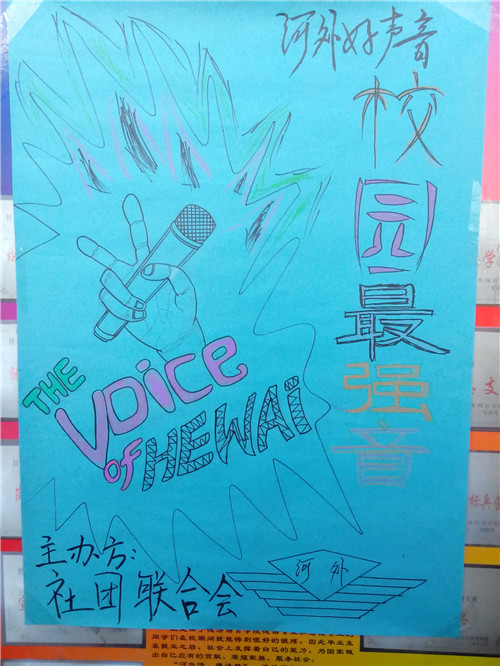 河外好声音
校园最强音
THE
VOiCe
OF HEWAi
主办方:
社团联合会
河外